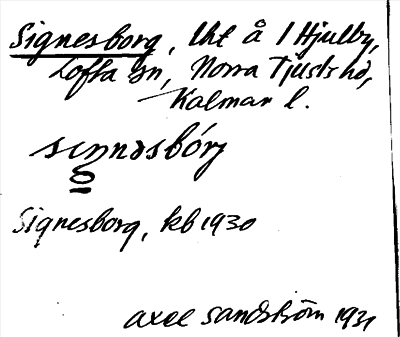 Signesborg, lht å 1 Hjulby,
Loffta sn, Norra Tjusts hd,
Kalmar l.
Signesborg, kb 1930
Axel Sandström 1931